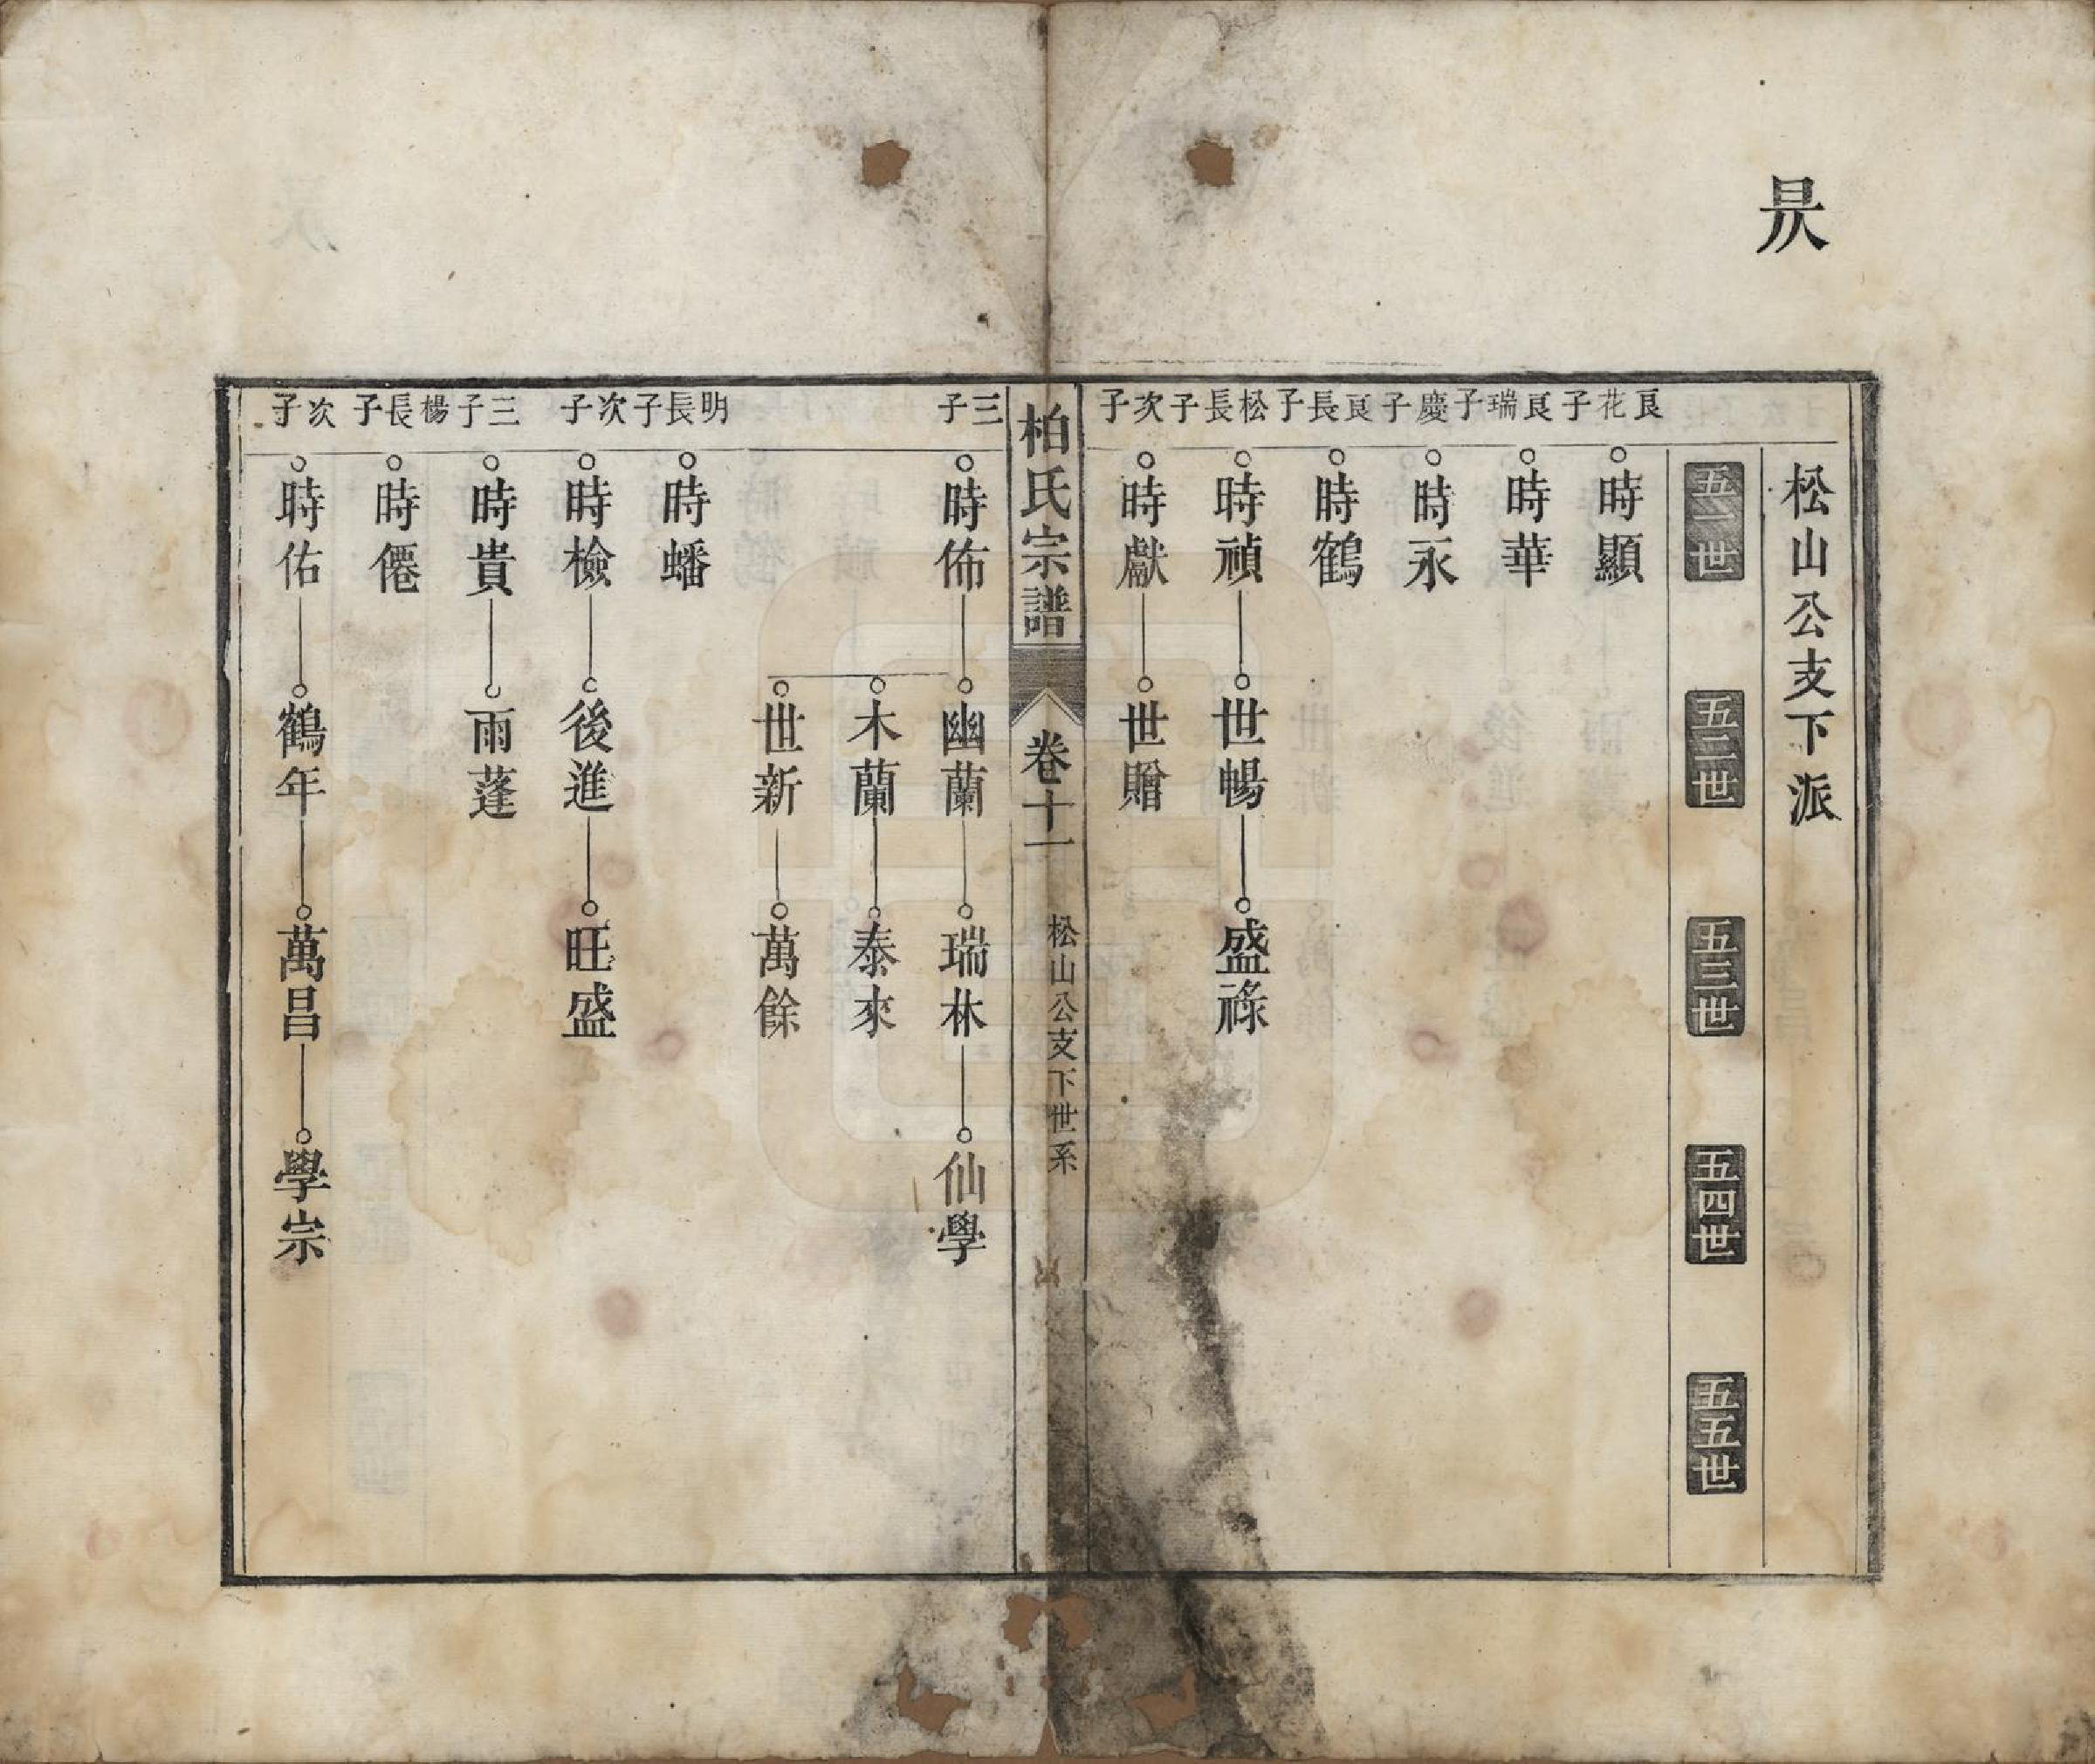 昃
松山公支下派
五一世 五二世 五三世 五四世 五五世
良花子 時顯
良瑞子 時華
慶子 時永
良長子 時鶴
松長子 時禎 世暢 盛祿
次子 時獻 世贈
柏氏宗譜 卷十一 松山公支下世系
三子 時佈 幽蘭 瑞林 仙學
木蘭 泰來
世新 萬餘
明長子 時蟠
次子 時檢 後進 旺盛
三子 時貴 雨蓬
楊長子 時僊
次子 時佑 鶴年 萬昌 學宗